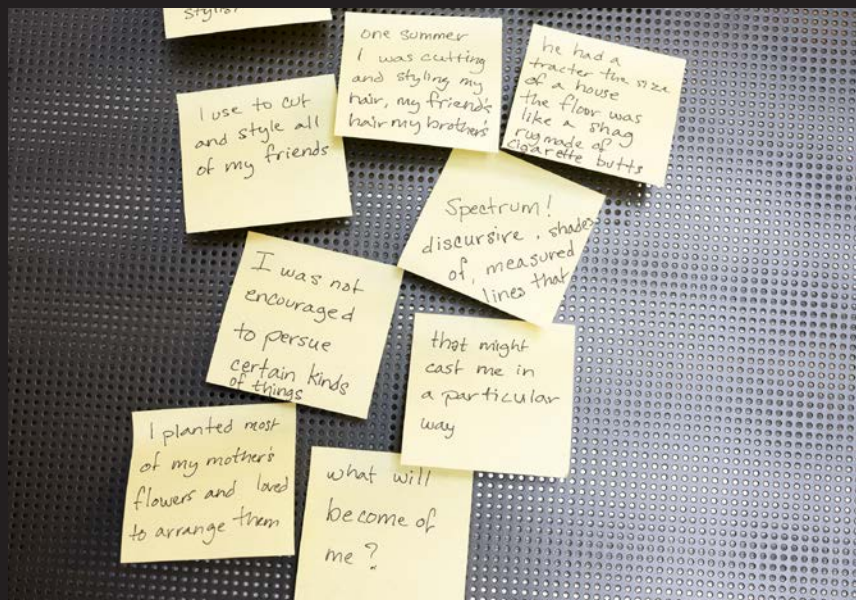 stylist
one summer
I was cutting
and styling my
hair, my friend's
hair my brother's
he had a
tracter the size
of a house
the floor was
like a shag
rug made of
cigarette butts
I use to cut
and style all
of my friends
Spectrum!
discursive, shades
of, measured
lines that
I was not
encouraged
to persue
certain kinds
of things
that might
cast me in
a particular
way
I planted most
of my mother's
flowers and loved
to arrange them
what will
become of
me?